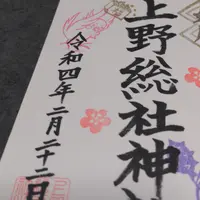 上野総社神社
令和四年二月二十二日